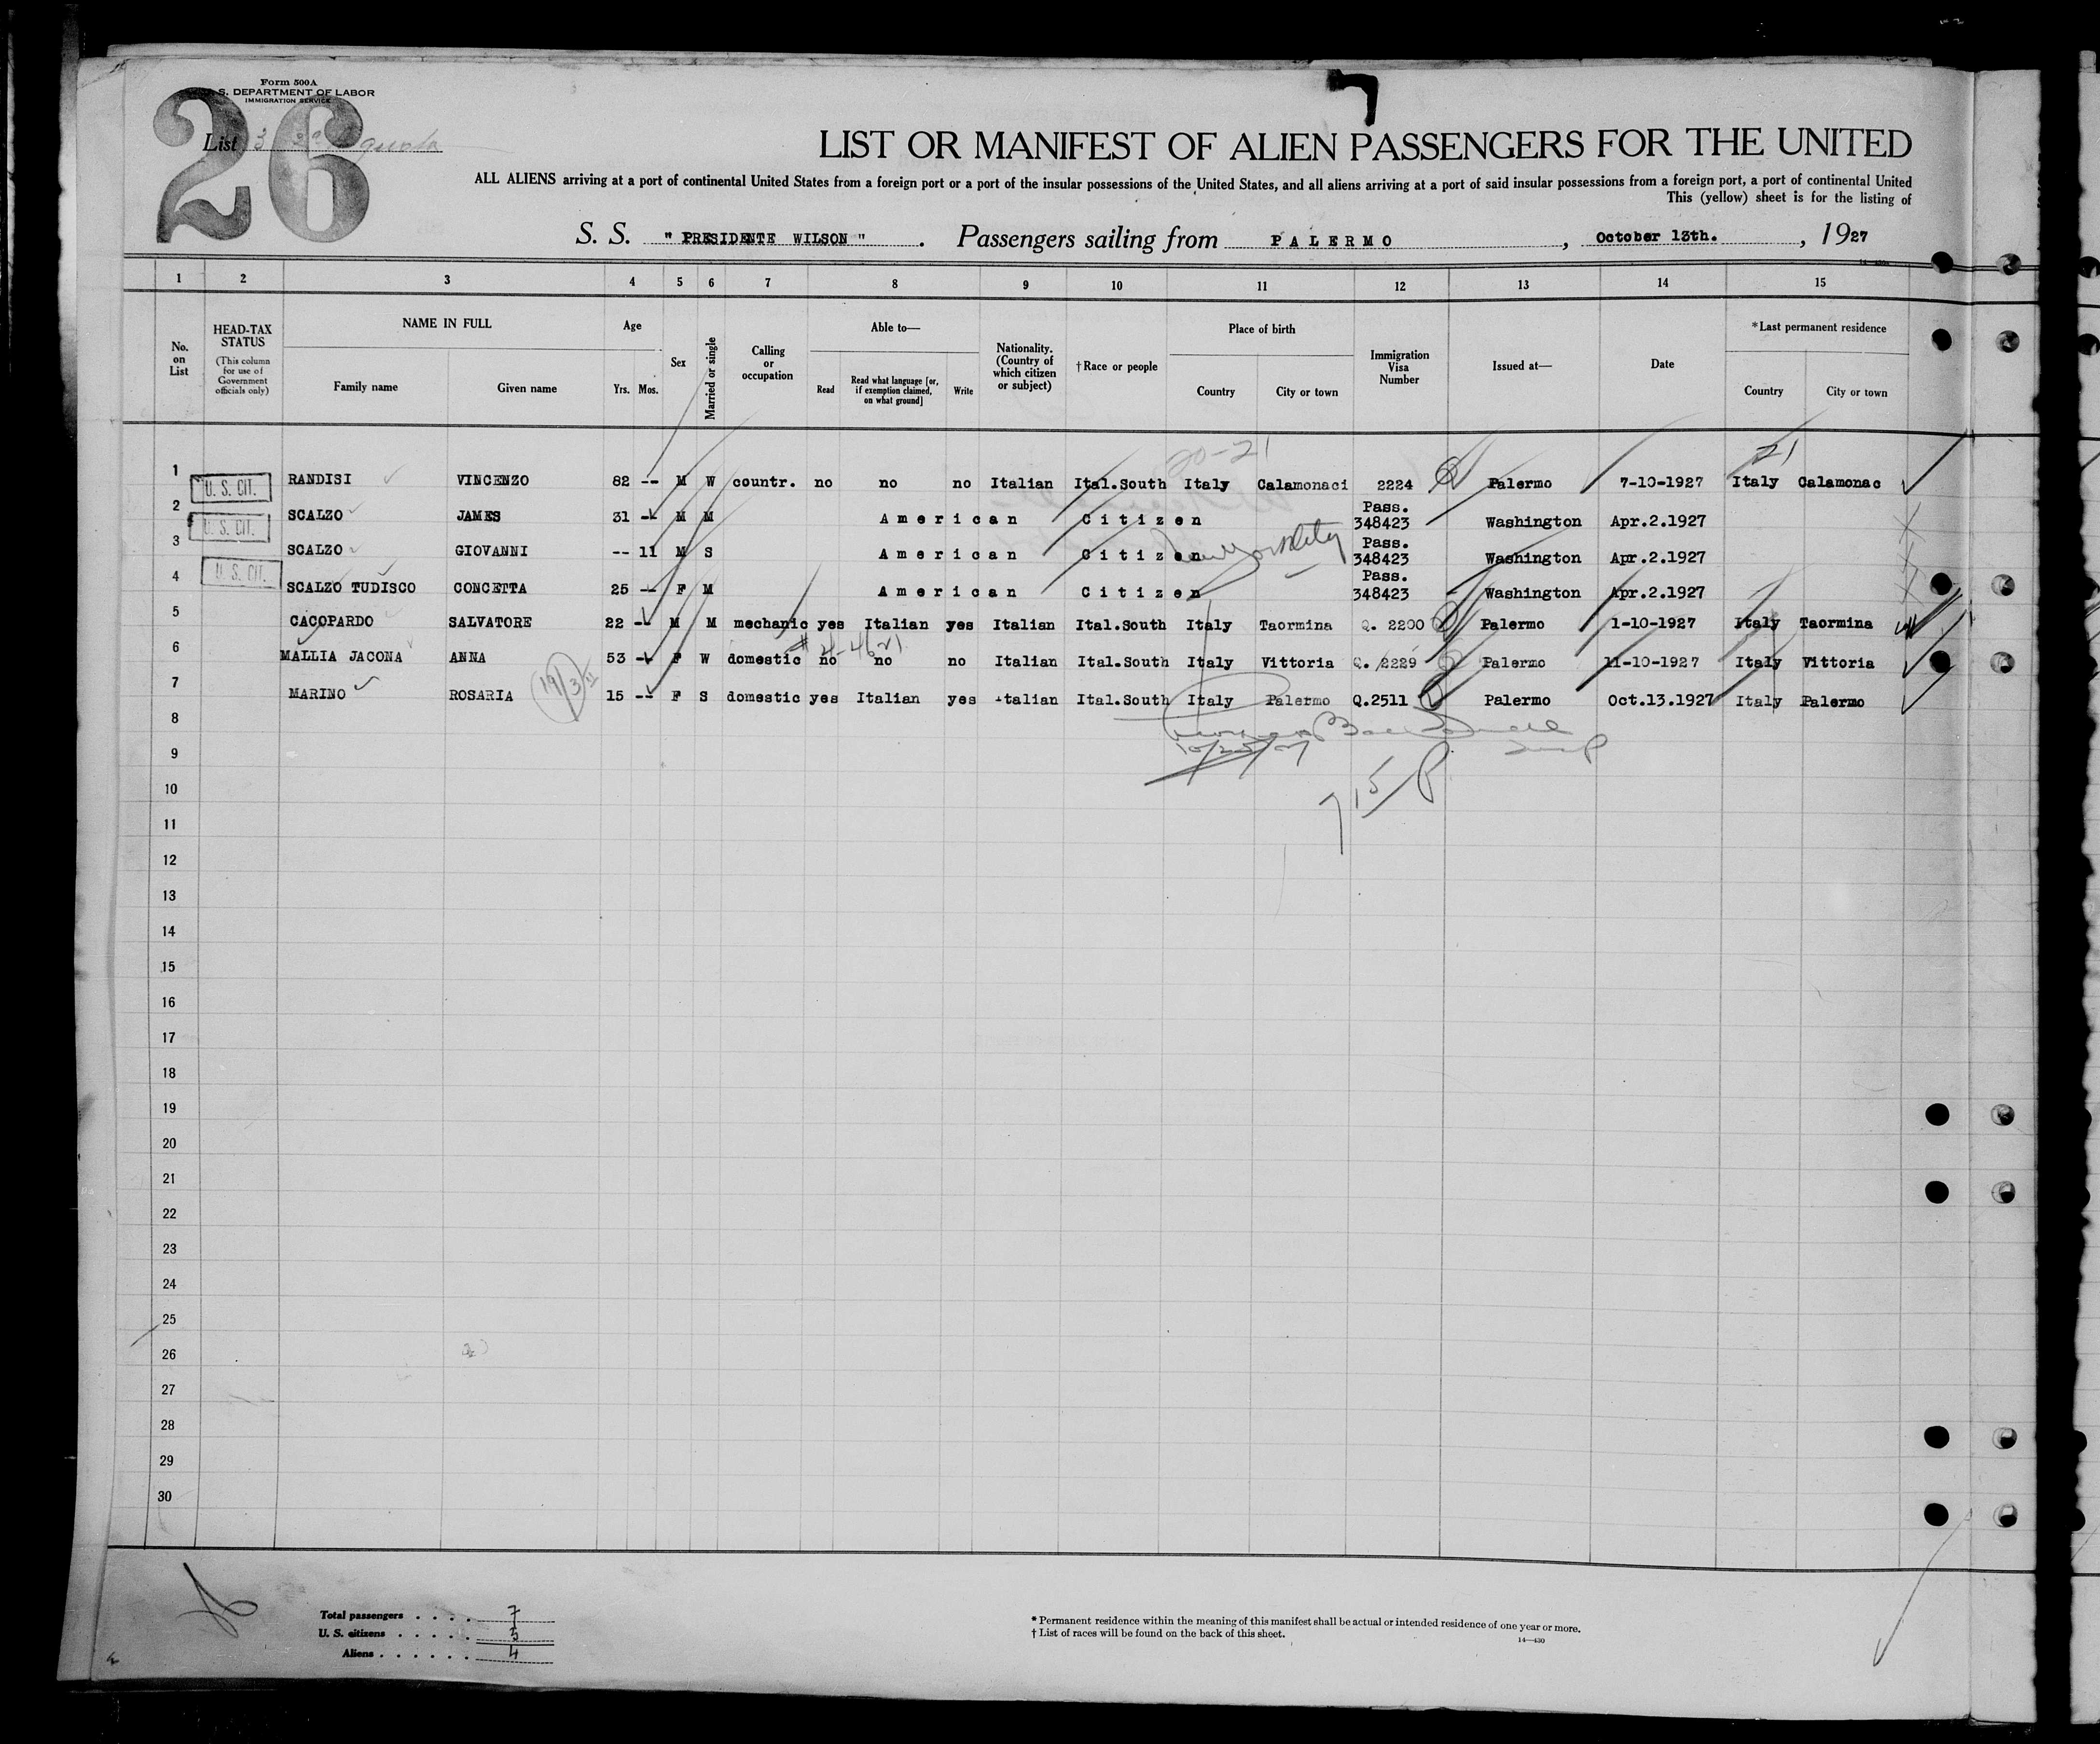 Form 500A
S. DEPARTMENT OF LABOR
IMMIGRATION SERVICE
26
List 3 quota
LIST OR MANIFEST OF ALIEN PASSENGERS FOR THE UNITED
ALL ALIENS arriving at a port of continental United States from a foreign port or a port of the insular possessions of the United States, and all aliens arriving at a port of said insular possessions from a foreign port, a port of continental United
This (yellow) sheet is for the listing of
S. S. " PRESIDENTE WILSON " . Passengers sailing from PALERMO , October 13th. , 1927
1 2 3 4 5 6 7 8 9 10 11 12 13 14 15
No. on List
HEAD-TAX STATUS (This column for use of Government officials only)
NAME IN FULL
Family name Given name
Age
Yrs. Mos.
Sex
Married or single
Calling or occupation
Able to—
Read Read what language [or, if exemption claimed, on what ground] Write
Nationality. (Country of which citizen or subject)
†Race or people
Place of birth
Country City or town
Immigration Visa Number
Issued at—
Date
*Last permanent residence
Country City or town
20-21 21
1 U. S. CIT. RANDISI VINCENZO 82 -- M W countr. no no no Italian Ital.South Italy Calamonaci 2224 Palermo 7-10-1927 Italy Calamonac
2 U. S. CIT. SCALZO JAMES 31 -- M M American Citizen Pass. 348423 Washington Apr.2.1927
3 SCALZO GIOVANNI -- 11 M S American Citizen Pass. 348423 Washington Apr.2.1927
4 U. S. CIT. SCALZO TUDISCO CONCETTA 25 -- F M American Citizen Pass. 348423 Washington Apr.2.1927
5 CACOPARDO SALVATORE 22 -- M M mechanic yes Italian yes Italian Ital.South Italy Taormina Q. 2200 Palermo 1-10-1927 Italy Taormina
6 MALLIA JACONA ANNA 53 -- F W domestic no no no Italian Ital.South Italy Vittoria Q. 2229 Palermo 11-10-1927 Italy Vittoria
7 MARINO ROSARIA 15 -- F S domestic yes Italian yes Italian Ital.South Italy Palermo Q.2511 Palermo Oct.13.1927 Italy Palermo
8
9
10
11
12
13
14
15
16
17
18
19
20
21
22
23
24
25
26
27
28
29
30
Total passengers . . . . 7
U. S. citizens . . . . . 3
Aliens . . . . . . 4
* Permanent residence within the meaning of this manifest shall be actual or intended residence of one year or more.
† List of races will be found on the back of this sheet.
14—430